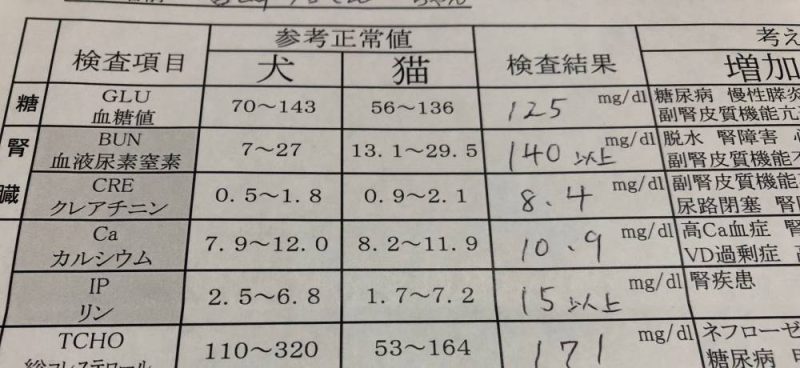 ちゃん
参考正常値
考え
検査項目 犬 猫 検査結果 増加
糖 GLU 血糖値 70～143 56～136 125 mg/dl 糖尿病 慢性膵炎
副腎皮質機能亢
腎臓 BUN 血液尿素窒素 7～27 13.1～29.5 140以上 mg/dl 脱水 腎障害
副腎皮質機能不
CRE クレアチニン 0.5～1.8 0.9～2.1 8.4 mg/dl 副腎皮質機能
尿路閉塞 腎
Ca カルシウム 7.9～12.0 8.2～11.9 10.9 mg/dl 高Ca血症 腎
VD過剰症
IP リン 2.5～6.8 1.7～7.2 15以上 mg/dl 腎疾患
TCHO 総コレステロール 110～320 53～164 171 mg/dl ネフローゼ
糖尿病 甲